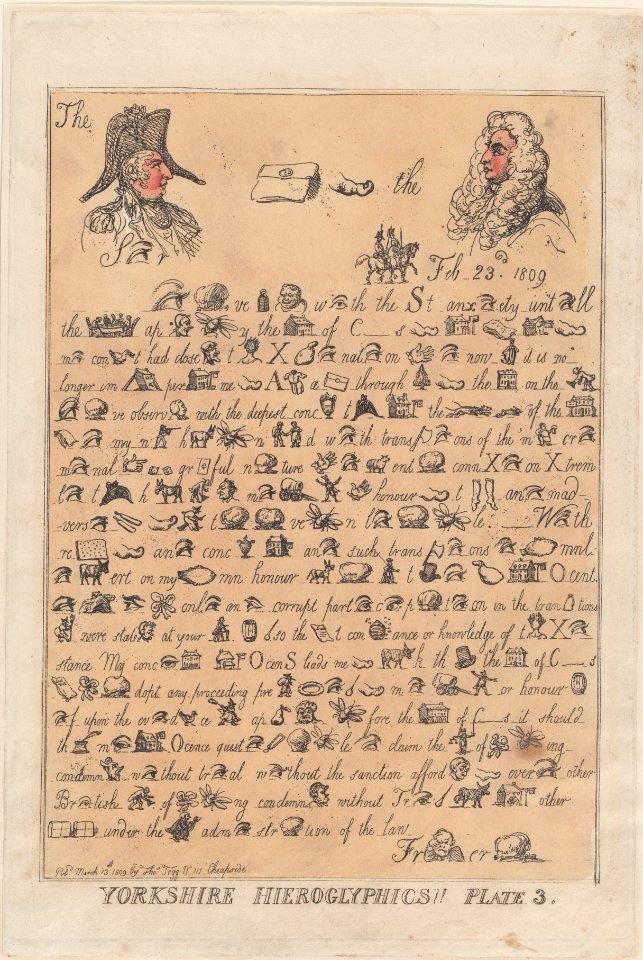 The
the
S r
Feb 23d 1809
ve w th the St anx ety unt ll
the ap y the of C s
m con t had close t X nat on now it is no
longer im per me A a through the on the
ve observ with the deepest conc t the of the
my n h n d w th trans ons of the m cr
m nal gr ful n ture end conn X on X trem
t t h m honour t an mad-
vers t ve n l le. W th
re an conc an such trans ons mnl
ert on my mn honour t Ocent.
onl an corrupt part c p t on in the tran tions
were stat at your so the t con ance or knowledge of t X
stance. My conc OcenS leads me h th the of C s
dopt any proceeding pre m or honour
f upon the ov d ce ap fore the of C s it should
th m Ocence quest le claim the of ing
condemn w thout tr al w thout the sanction afford over other
Br tish of ng condemn without Tr l other
under the adm str tion of the law
Fr er
Pubd March 13th 1809 by Thos Tegg No 111 Cheapside
YORKSHIRE HIEROGLYPHICS!! PLATE 3.